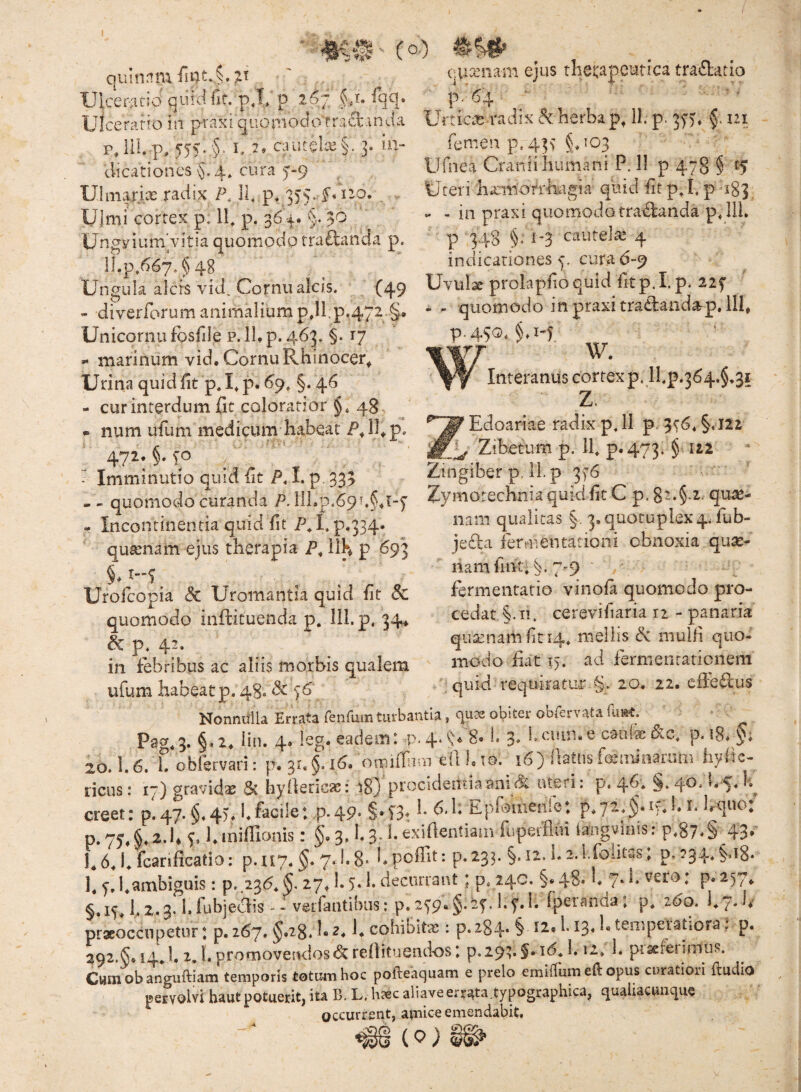 (o)
quinam sint. §. 21
Ulceratio quid sit. p. I. p 267 §. 1. sqq.
Ulceratio in praxi quomodo tractanda
p. III. p. 555. §. 1. 2. cautelæ §. 3. in-
dicationes §. 4. cura 5-9
Ulmariæ radix P. II. p. 355. §. 120.
Ulmi cortex p. II. p. 364. §. 30
Ungvium vitia quomodo tractanda p.
II. p. 667. § 48
Ungula alcis vid. Cornu alcis. (49
- diversorum animalium p. II. p. 472 §.
Unicornu fossile P. II. p. 463. §. 17
- marinum vid. Cornu Rhinocer.
Urina quid sit p. I. p. 69. §. 46
- cur interdum sit coloratior §. 48
- num usum medicum habeat P. II. p.
472. §. 50
- Imminutio quid sit P. I. p. 333
- - quomodo curanda P. III. p. 691. §. 1-5
- Incontinentia quid sit P. I. p. 334.
quænam ejus therapia P. III. p 693
§. 1--5
Uroscopia & Uromantia quid sit &
quomodo instituenda p. III. p. 34.
& p. 42.
in febribus ac aliis morbis qualem
usum habeat p. 48. & 56
quænam ejus therapeutica tractatio
p. 64
Urticæ radix & herba p. II. p. 355. §. 121
semen p. 435 §. 103
Usnea Cranii humani P. II p 478 § 15
Uteri hæmorrhagia quid sit p. I. p 183
- - in praxi quomodo tractanda p. III.
p 348 §. 1-3 cautelæ 4
indicationes 5. cura 6-9
Uvulæ prolapsio quid sit p. I. p. 225
- - quomodo in praxi tractanda p. III.
p. 450. §. 1-5
W.
Winteranus cortex p. II. p. 364. §. 31
Z.
ZEdoariae radix p. II p. 356. §. 122
Zibetum p. II. p. 473. § 122
Zingiber p. II. p 356
Zymotechnia quid sit C p. 82. §. 2. quæ-
nam qualitas §. 3. quotuplex 4. sub-
jecta fermentationi obnoxia quæ-
nam sint. §. 7-9
fermentatio vinosa quomodo pro-
cedat §. 11. cerevisiaria 12 - panaria
quænam sit 14. mellis & mulsi quo-
modo fiat 15. ad fermentationem
quid requiratur §. 20. 22. effectus
Nonnulla Errata sensum turbantia, quæ obiter observata sunt.
Pag. 3. §. 2. lin. 4. leg. eadem: p. 4. §. 8. l. 3. l. cum. e causæ &c. p. 18. §.
20. l. 6. l. observari: p. 31. §. 16. omissum est l. 10. 16) flatus fœminarum hyste-
ricus: 17) gravidæ & hystericæ: 18) procidentia ani & uteri: p. 46. §. 40. l. 5. l.
creet: p. 47. §. 45. l. facile: p. 49. §. 53. l. 6. l. Epsomense: p. 72. §. 15. l. 1. l. quo:
p. 75. §. 2. l. 5. l. missionis: §. 3. l. 3. l. existentiam superflui sangvinis: p. 87. § 43.
l. 6. l. scarificatio: p. 117. §. 7. l. 8. l. possit: p. 233. §. 12. l. 2. l. solitas; p. 234. §. 18.
l. 5. l. ambiguis: p. 236. §. 27. l. 5. l. decurrant; p. 240. §. 48. l. 7. l. vero: p. 257.
§. 15. l. 2. 3. l. subjectis - - versantibus: p. 259. §. 25. l. 5. l. speranda: p. 260. l. 7. l.
præoccupetur: p. 267. §. 28. l. 2. l. cohibitæ: p. 284. § 12. l. 13. l. temperatiora: p.
292. §. 14. l. 2. l. promovendos & restituendos: p. 293. §. 16. l. 12. l. præferimus.
Cum ob angustiam temporis totum hoc posteaquam e prelo emissum est opus curatiori studio
pervolvi haut potuerit, ita B. L. hæc aliave errata typographica, qualiacunque
occurrent, amice emendabit.
(o)